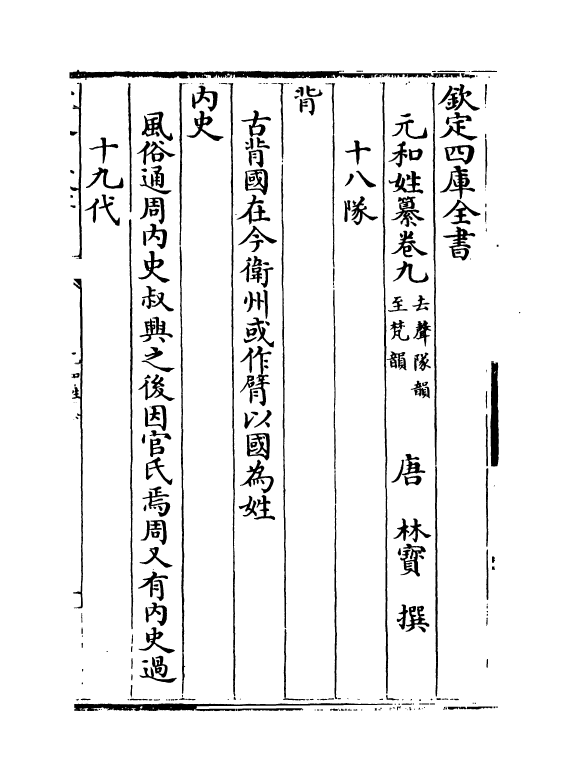 欽定四庫全書
元和姓纂卷九 去聲隊韻至梵韻 唐 林寳 撰
十八隊
背
古背國在今衛州或作臂以國為姓
内史
風俗通周内史叔興之後因官氏焉周又有内史過
十九代